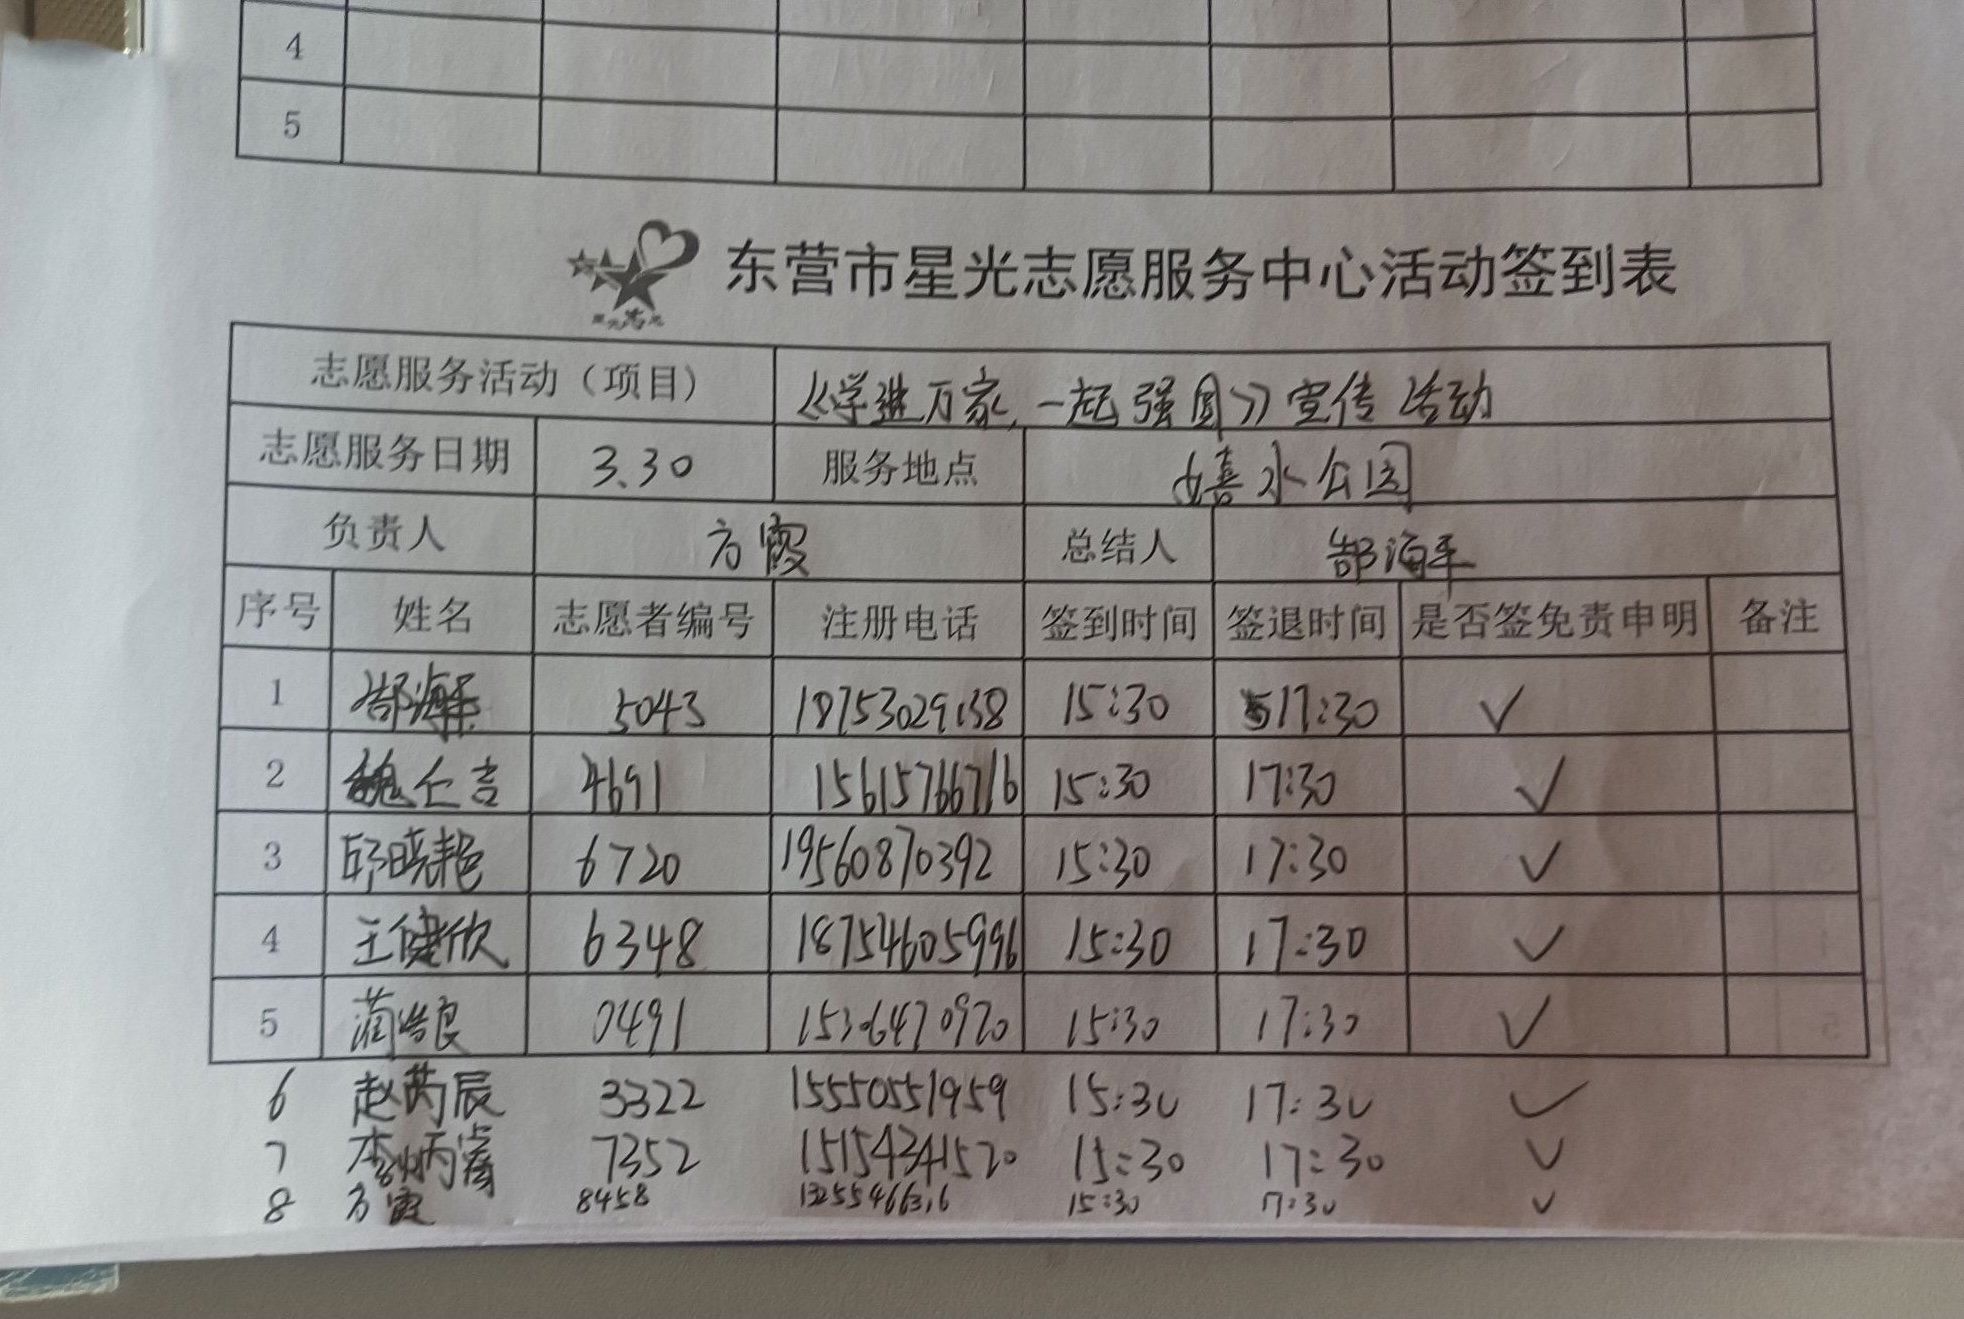 4
5
东营市星光志愿服务中心活动签到表
志愿服务活动（项目） 《学进万家,一起强国》宣传活动
志愿服务日期 3.30 服务地点 嬉水公园
负责人 方霞 总结人 郜海平
序号 姓名 志愿者编号 注册电话 签到时间 签退时间 是否签免责申明 备注
1 5043 18753029138 15:30 17:30 ✓
2 魏仁吉 4691 15615766716 15:30 17:30 ✓
3 晓艳 6720 19560870392 15:30 17:30 ✓
4 王健欣 6348 18754605996 15:30 17:30 ✓
5 0491 15306470970 15:30 17:30 ✓
6 赵芮辰 3322 15550551959 15:30 17:30 ✓
7 李炳 7352 15154341520 15:30 17:30 ✓
8 方霞 8458 13255466316 15:30 17:30 ✓